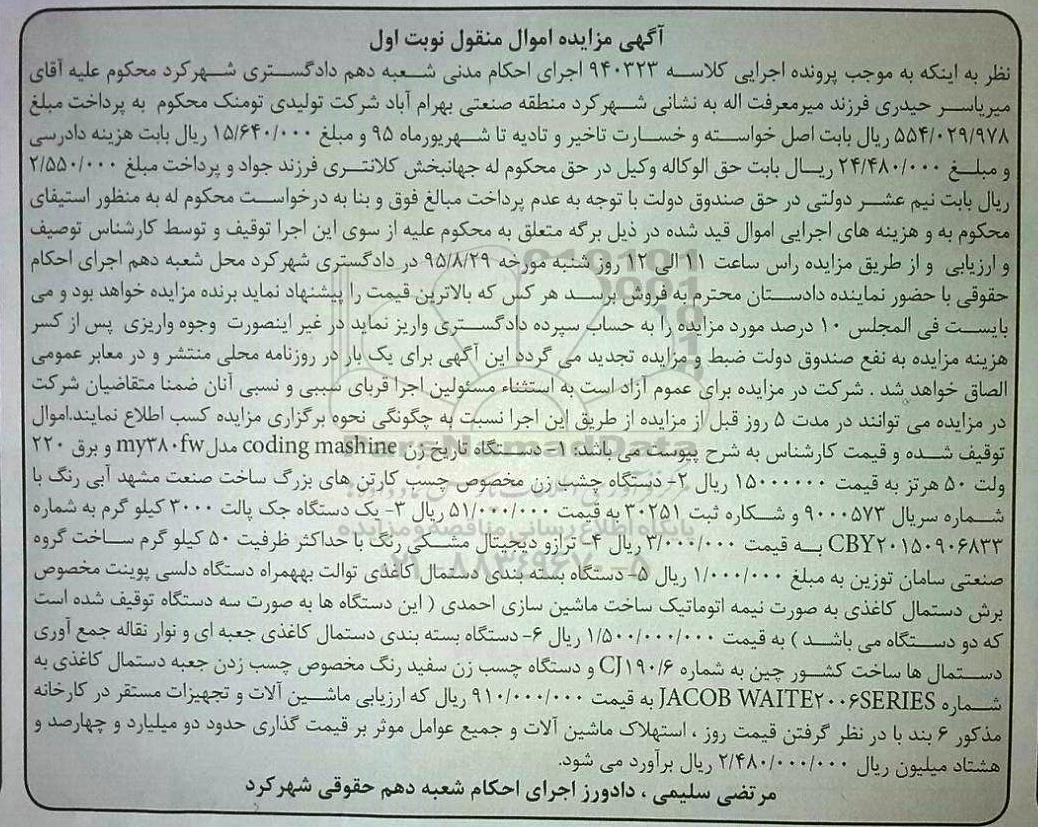 آگهی مزایده اموال منقول نوبت اول
نظر به اینکه به موجب پرونده اجرایی کلاسه ۹۴۰۳۲۳ اجرای احکام مدنی شعبه دهم دادگستری شهرکرد محکوم علیه آقای
میریاسر حیدری فرزند میرمعرفت اله به نشانی شهرکرد منطقه صنعتی بهرام آباد شرکت تولیدی تومنک محکوم به پرداخت مبلغ
۵۵۴/۰۲۹/۹۷۸ ریال بابت اصل خواسته و خسارت تاخیر و تادیه تا شهریورماه ۹۵ و مبلغ ۱۵/۶۴۰/۰۰۰ ریال بابت هزینه دادرسی
و مبلغ ۲۴/۴۸۰/۰۰۰ ریال بابت حق الوکاله وکیل در حق محکوم له جهانبخش کلانتری فرزند جواد و پرداخت مبلغ ۲/۵۵۰/۰۰۰
ریال بابت نیم عشر دولتی در حق صندوق دولت با توجه به عدم پرداخت مبالغ فوق و بنا به درخواست محکوم له به منظور استیفای
محکوم به و هزینه های اجرایی اموال قید شده در ذیل برگه متعلق به محکوم علیه از سوی این اجرا توقیف و توسط کارشناس توصیف
و ارزیابی و از طریق مزایده راس ساعت ۱۱ الی ۱۲ روز شنبه مورخه ۹۵/۸/۲۹ در دادگستری شهرکرد محل شعبه دهم اجرای احکام
حقوقی با حضور نماینده دادستان محترم به فروش برسد هر کس که بالاترین قیمت را پیشنهاد نماید برنده مزایده خواهد بود و می
بایست فی المجلس ۱۰ درصد مورد مزایده را به حساب سپرده دادگستری واریز نماید در غیر اینصورت وجوه واریزی پس از کسر
هزینه مزایده به نفع صندوق دولت ضبط و مزایده تجدید می گردد این آگهی برای یک بار در روزنامه محلی منتشر و در معابر عمومی
الصاق خواهد شد . شرکت در مزایده برای عموم آزاد است به استثناء مسئولین اجرا قربای سببی و نسبی آنان ضمنا متقاضیان شرکت
در مزایده می توانند در مدت ۵ روز قبل از مزایده از طریق این اجرا نسبت به چگونگی نحوه برگزاری مزایده کسب اطلاع نمایند.اموال
توقیف شده و قیمت کارشناس به شرح پیوست می باشد: ۱- دستگاه تاریخ زن coding mashine مدل my۳۸۰fw و برق ۲۲۰
ولت ۵۰ هرتز به قیمت ۱۵۰۰۰۰۰۰ ریال ۲- دستگاه چشب زن مخصوص چسب کارتن های بزرگ ساخت صنعت مشهد آبی رنگ با
شماره سریال ۹۰۰۰۵۷۳ و شکاره ثبت ۳۰۲۵۱ به قیمت ۵۱/۰۰۰/۰۰۰ ریال ۳- یک دستگاه جک پالت ۳۰۰۰ کیلو گرم به شماره
CBY۲۰۱۵۰۹۰۶۸۳۳ به قیمت ۳/۰۰۰/۰۰۰ ریال ۴- ترازو دیجیتال مشکی رنگ با حداکثر ظرفیت ۵۰ کیلو گرم ساخت گروه
صنعتی سامان توزین به مبلغ ۱/۰۰۰/۰۰۰ ریال ۵- دستگاه بسته بندی دستمال کاغذی توالت بههمراه دستگاه دلسی پوینت مخصوص
برش دستمال کاغذی به صورت نیمه اتوماتیک ساخت ماشین سازی احمدی ( این دستگاه ها به صورت سه دستگاه توقیف شده است
که دو دستگاه می باشد ) به قیمت ۱/۵۰۰/۰۰۰/۰۰۰ ریال ۶- دستگاه بسته بندی دستمال کاغذی جعبه ای و نوار نقاله جمع آوری
دستمال ها ساخت کشور چین به شماره CJ۱۹۰/۶ و دستگاه چسب زن سفید رنگ مخصوص چسب زدن جعبه دستمال کاغذی به
شماره JACOB WAITE۲۰۰۶SERIES به قیمت ۹۱۰/۰۰۰/۰۰۰ ریال که ارزیابی ماشین آلات و تجهیزات مستقر در کارخانه
مذکور ۶ بند با در نظر گرفتن قیمت روز ، استهلاک ماشین آلات و جمیع عوامل موثر بر قیمت گذاری حدود دو میلیارد و چهارصد و
هشتاد میلیون ریال ۲/۴۸۰/۰۰۰/۰۰۰ ریال برآورد می شود.
مرتضی سلیمی ، دادورز اجرای احکام شعبه دهم حقوقی شهرکرد